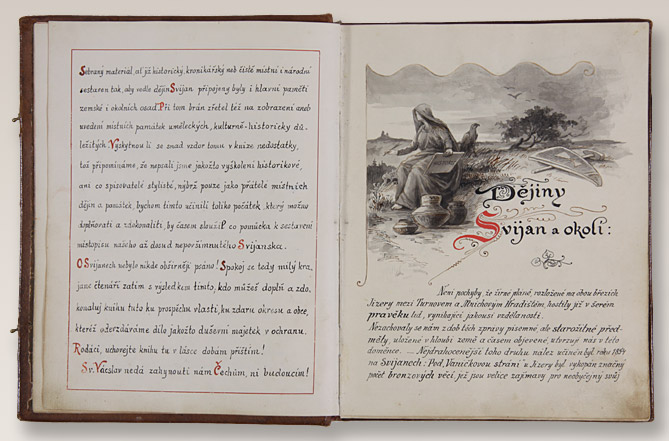 Sebraný materiál, ať již historický, kronikářský neb čistě místní i národní
sestaven tak, aby vedle dějin Svijan připojeny byly i hlavní paměti
zemské i okolních osad. Při tom brán zřetel též na zobrazení aneb
uvedení místních památek uměleckých, kulturně-historicky dů-
ležitých. Vyskytnou li se snad vzdor tomu v knize nedostatky,
tož připomínáme, že nepsali jsme jakožto vyškolení historikové,
ani co spisovatelé stylisté, nýbrž pouze jako přátelé místních
dějin a památek, bychom tímto učinili toliko počátek, který možno
doplňovati a zdokonaliti, by časem sloužil co pomůcka k sestavení
místopisu našeho až dosud nepovšimnutého Svijanska.
O Svijanech nebylo nikde obšírněji psáno! Spokoj se tedy milý kra,
jane čtenáři zatím s výsledkem tímto, kdo můžeš doplň a zdo,
konaluj knihu tuto ku prospěchu vlasti, ku zdaru okresu a obce,
kteréž odevzdáváme dílo jakožto duševní majetek v ochranu.
Rodáci, uchovejte knihu tu v lásce dobám příštím!
Sv. Václav nedá zahynouti nám Čechům, ni budoucím!
Dějiny
Svijan a okolí:
Není pochyby, že žírné pláně, rozložené na obou březích
Jizery mezi Turnovem a Mnichovým Hradištěm, hostily již v šerém
pravěku lid, vynikající jakousi vzdělaností.
Nezachovaly se nám z dob těch zprávy písemné, ale starožitné před-
měty, uložené v hloubi země a časem objevené, utvrzují nás v této
domněnce. — Nejdrahocennější toho druhu nález učiněn byl roku
na Svijanech: Pod Vaníčkovou strání u Jizery byl vykopán značný
počet bronzových věcí, jež jsou velice zajímavy pro neobyčejný svůj